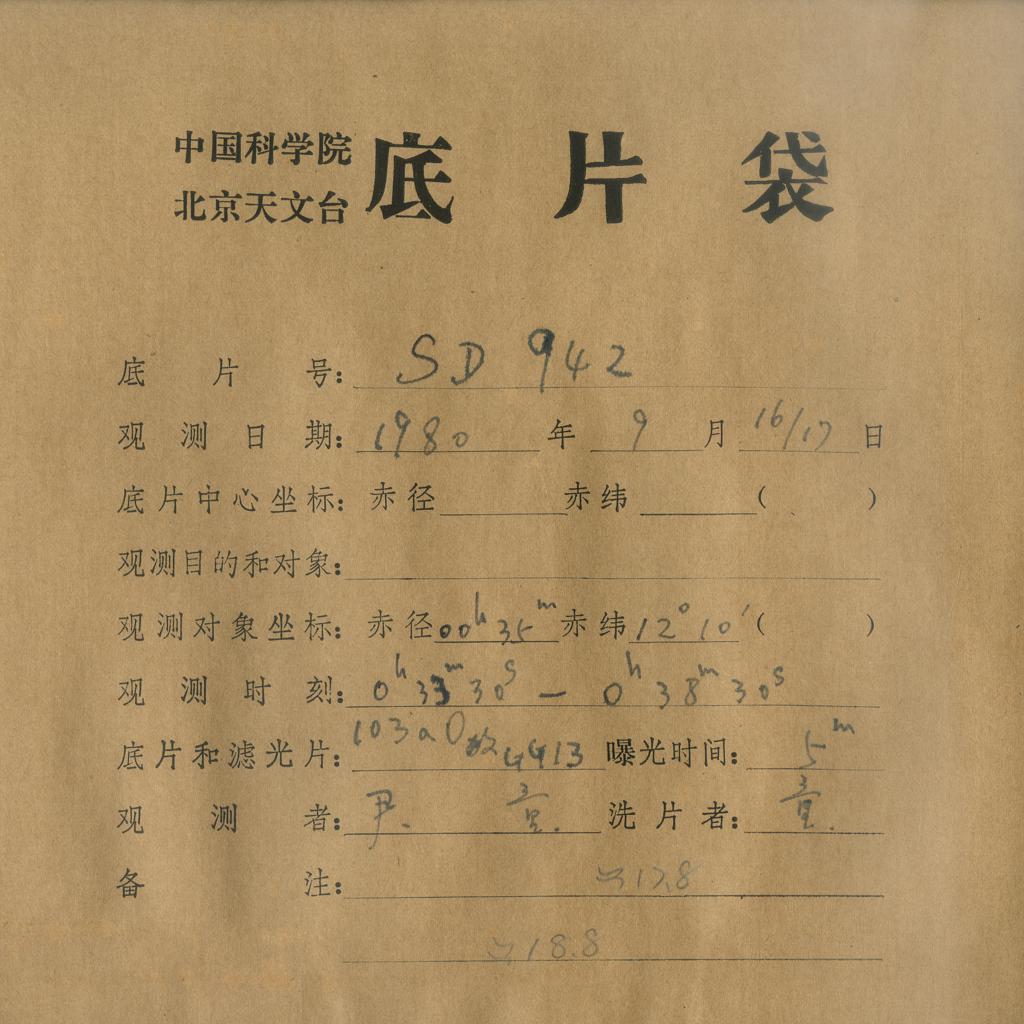 中国科学院
北京天文台
底片袋
底片号：SD 942
观测日期：1980年9月16/17日
底片中心坐标：赤径 赤纬 （ ）
观测目的和对象：
观测对象坐标：赤径00h35m赤纬12°10′（ ）
观测时刻：0h33m30s — 0h38m30s
底片和滤光片：103aO 4413 曝光时间：5m
观测者：尹. 童. 洗片者：童.
备注：17.8
18.8